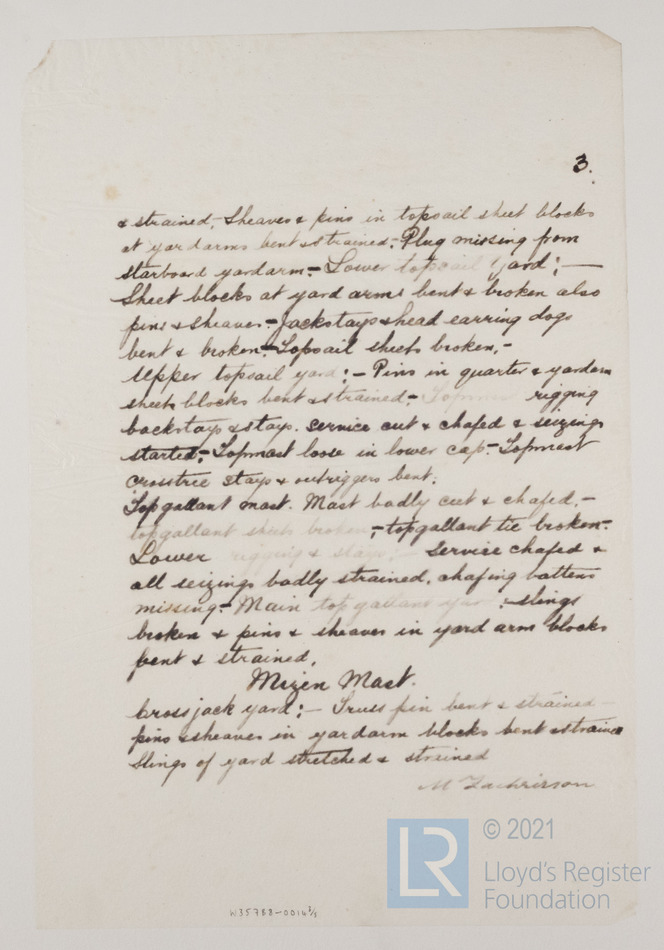 3.
& strained,- Sheaves & pins in topsail sheet blocks
at yardarms bent & strained:- Plug missing from
starboard yardarm:- Lower topsail yard:—
Sheet blocks at yard arms bent & broken also
pins & sheaves:- Jackstays & head earring dogs
bent & broken:- Topsail sheets broken,-
Upper topsail yard:- Pins in quarter & yardarm
sheet blocks bent & strained:- rigging
backstays & stays. service cut & chafed & seizings
started:- Topmast loose in lower cap:- Topmast
crosstree stays & outriggers bent.
Topgallant mast. Mast badly cut & chafed,-
topgallant sheets broken,- topgallant tie broken:-
Lower rigging & stays:- Service chafed &
all seizings badly strained, chafing battens
missing:- Main topgallant yar :- slings
broken & pins & sheaves in yard arm blocks
bent & strained,
Mizen Mast.
Crossjack yard:- Truss pin bent & strained-
pins & sheaves in yardarm blocks bent & strained
Slings of yard stretched & strained
M Zachrisson
W35788-0016 3/5
LR
© 2021
Lloyd's Register
Foundation